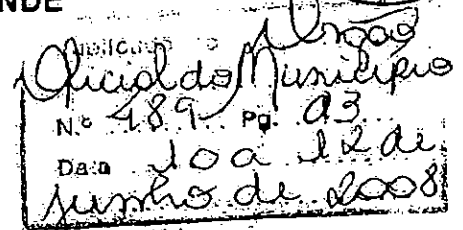 NDE
Publicado no Órgão
Oficial do Município
N.º 489 Pg. 03
Data 10 a 12 de
junho de 2008